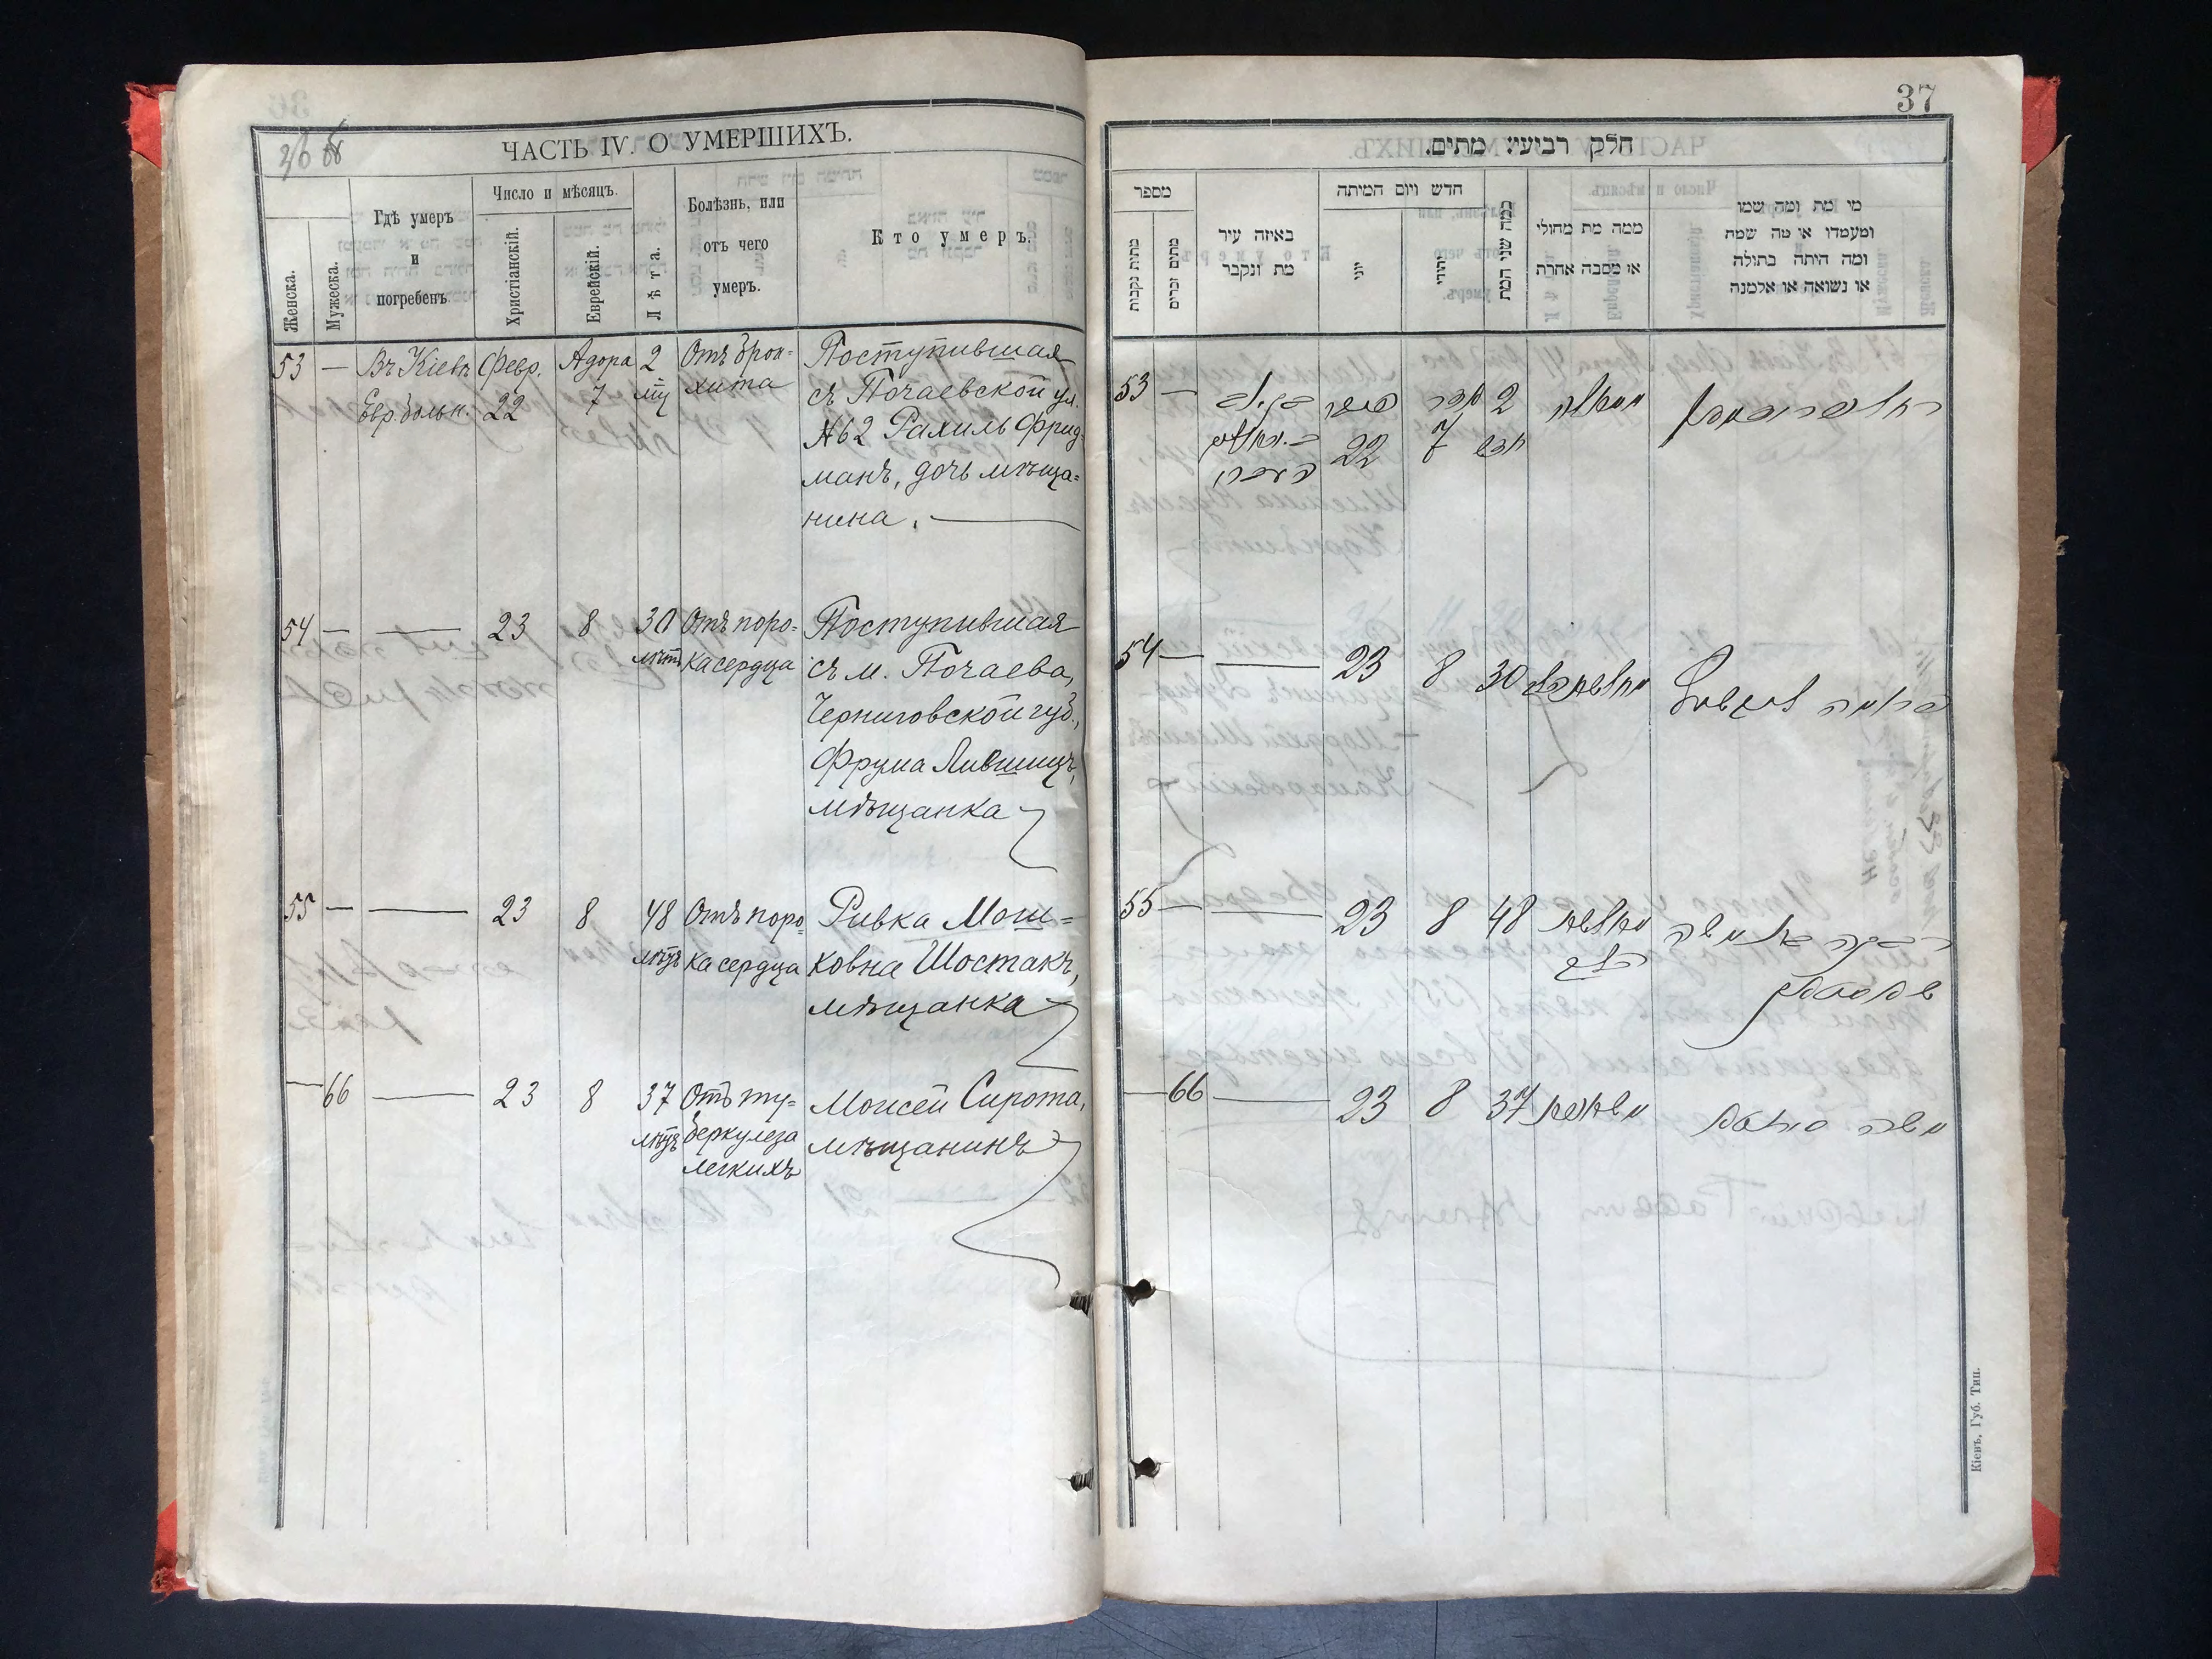 ЧАСТЬ IV. О УМЕРШИХЪ.
Женска.
Мужеска.
Гдѣ умеръ
и
погребенъ
Число и мѣсяцъ.
Христіанскій.
Еврейскій.
Лѣта.
Болѣзнь, или
отъ чего
умеръ.
Кто умеръ.
53 — Въ Кіевѣ Февр. Адора 2 Отъ брон=
Евр. больн. 22 7 хита
Поступившая
съ Почаевской ул.
№62 Рахиль Фрид=
манъ, дочь мѣща=
нина.
54 — — 23 8 30 Отъ поро=
лѣтъ ка сердца
Поступившая
съ м. Почаева,
Черниговской губ.,
Фрума Лившицъ,
мѣщанка
55 — — 23 8 48 Отъ поро=
лѣтъ ка сердца
Ривка Мош=
ковна Шостакъ,
мѣщанка
— 66 — 23 8 37 Отъ ту=
лѣтъ беркулеза
легкихъ
Моисей Сирота,
мѣщанинъ
37
חלק רביעי מתים.
מספר
מתות נקבות
מתים זכרים
באיזה עיר
מת ונקבר
חדש ויום המיתה
יוני
יהודי
כמה שני המת
ממה מת מחולי
או מסבה אחרת
מי מת ומה שמו
ומעמדו או מה שמת
ומה היתה בתולה
או נשואה או אלמנה
53 —
22 7 2
רחל פרידמאן
54 — — 23 8 30
פרומא ליוושיץ
55 — — 23 8 48
רבקה בת משה
שאסטאק
— 66 — 23 8 37
משה סיראטא
Кіевъ, Губ. Тип.